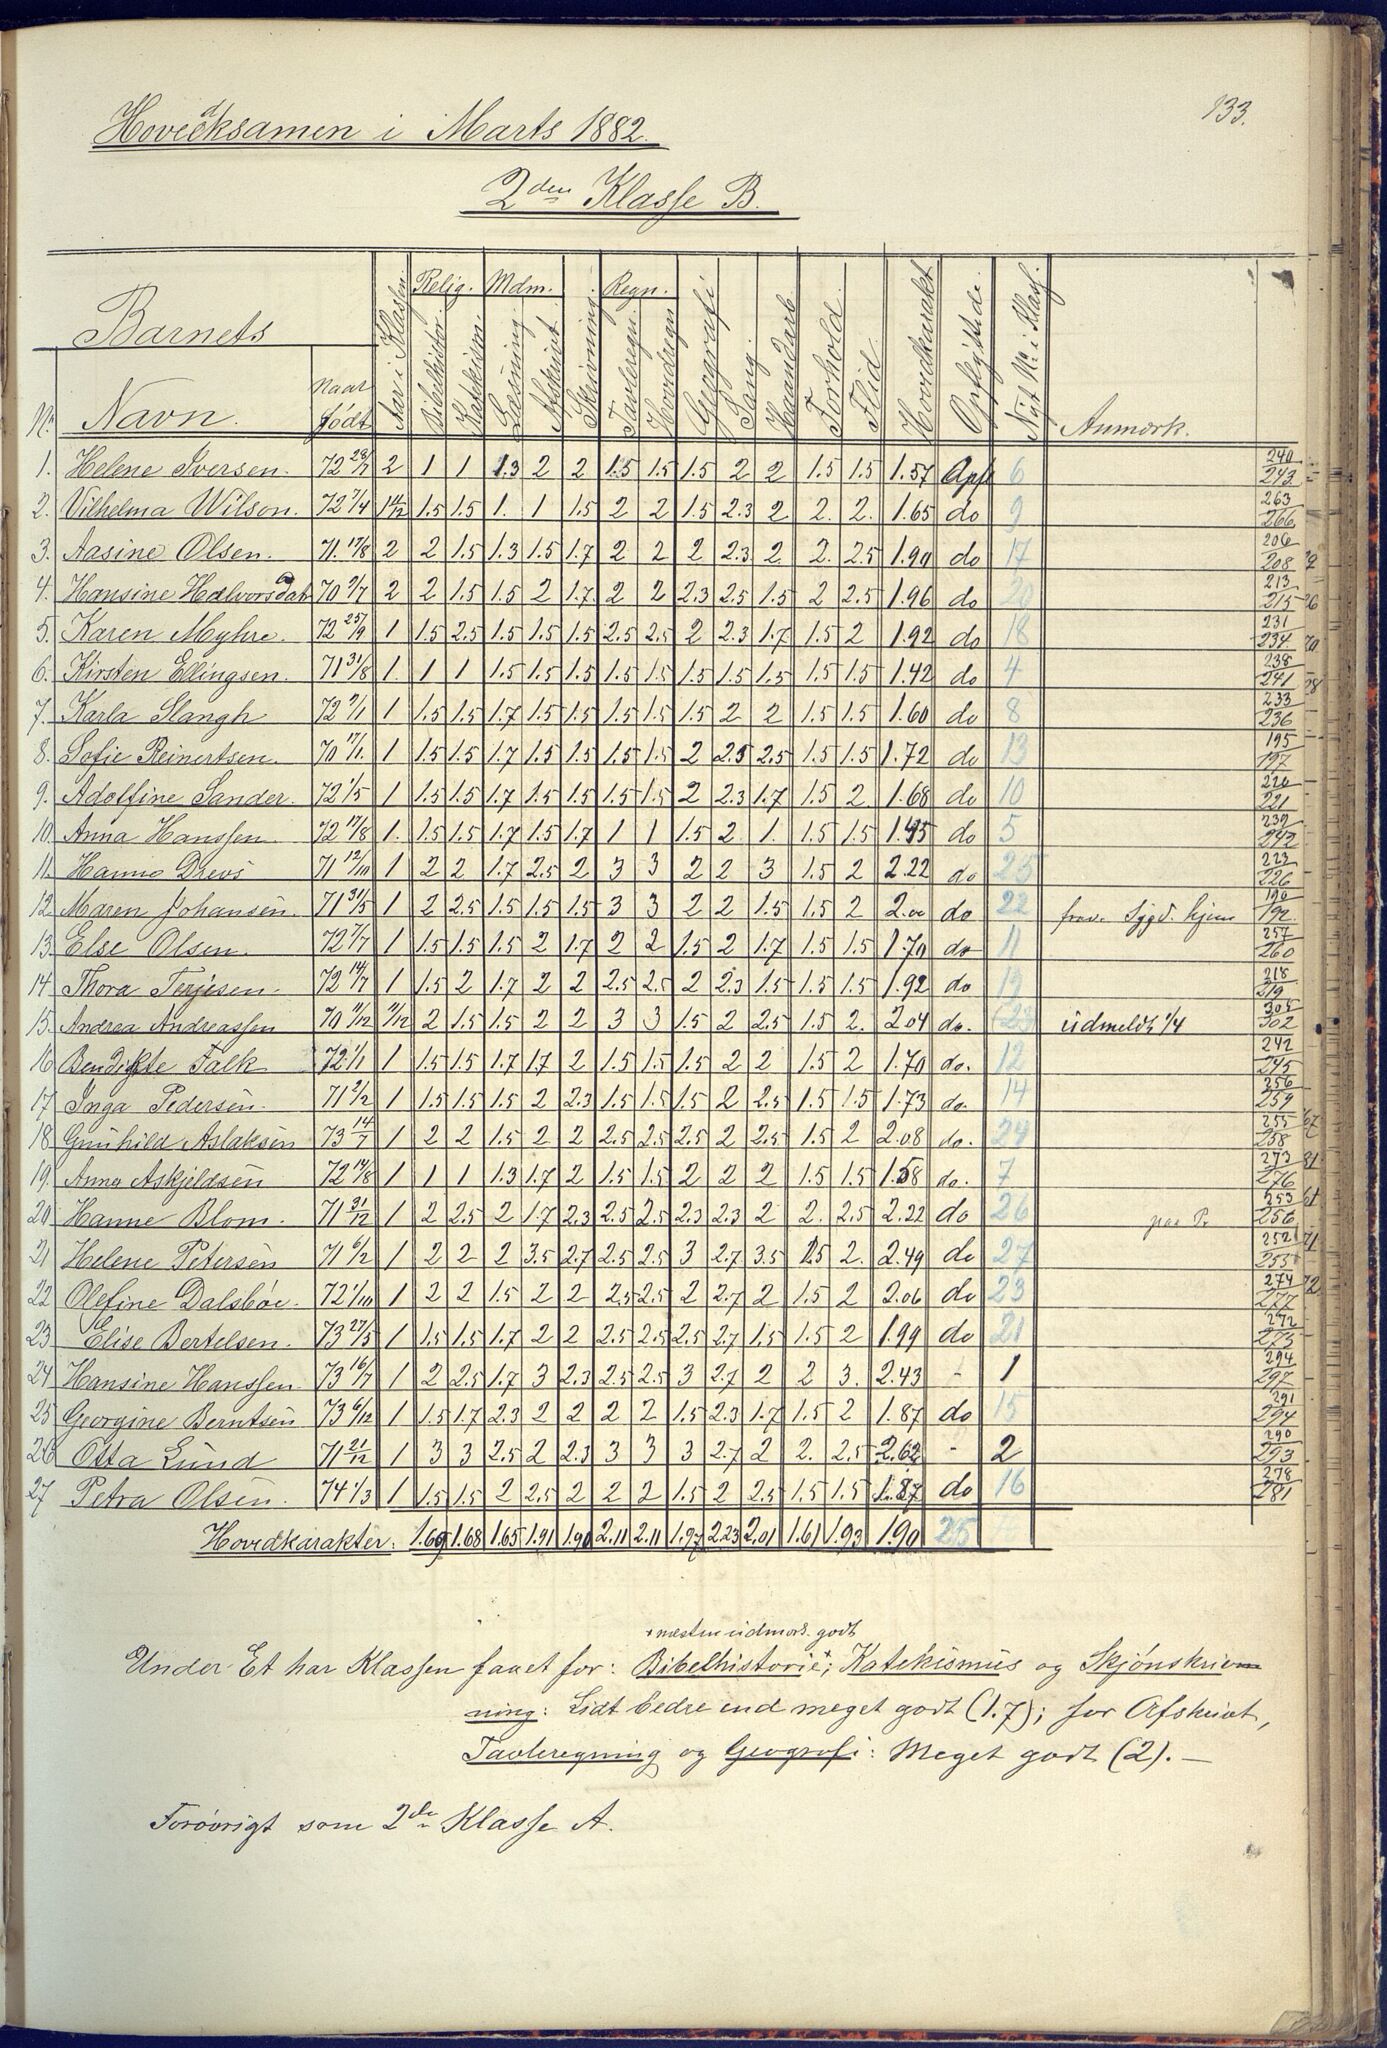 133.
Hovedeksamen i Marts 1882.
2den Klasse B.
Barnets
No. Navn. Naar født Aar i Klassen. Relig. Bibelhistor. Katekism. Mdm. Læsning. Afskrivt. Skrivning. Regn. Tavleregn. Hovedregn. Geografi Sang. Haandarb. Forhold. Flid. Hovedkarakt. Opflyttede. Nyt No. i Klass. Anmærk.
1. Helene Iversen. 72 28/7 2 1 1 1.3 2 2 1.5 1.5 1.5 2 2 1.5 1.5 1.57 Opfl 6 240 243
2. Vilhelma Wilson. 72 7/4 1 4/12 1.5 1.5 1. 1 1.5 2 2 1.5 2.3 2 2. 2. 1.65 do 9 263 266
3. Aasine Olsen. 71. 17/8 2 2 1.5 1.3 1.5 1.7 2 2 2 2.3 2. 2. 2.5 1.90 do 17 206 208
4. Hansine Halvorsdat 70 2/7 2 2 1.5 1.5 2 1.7 2 2 2.3 2.5 1.5 2 2.5 1.96 do 20 213 215
5. Karen Myhre. 72 25/9 1 1.5 2.5 1.5 1.5 1.5 2.5 2.5 2 2.3 1.7 1.5 2 1.92 do 18 231 234
6. Kirsten Ellingsen. 71 31/8 1. 1 1 1.5 1.5 1.5 1.5 1.5 1.5 1.5 1.5 1.5 1.5 1.42 do 4 238 241
7. Karla Slangh 72 2/1 1 1.5 1.5 1.7 1.5 1.5 1.5 1.5 1.5 2 2 1.5 1.5 1.60 do 8 233 236
8. Sofie Reinertsen. 70 17/1. 1 1.5 1.5 1.7 1.5 1.5 1.5 1.5 2 2.5 2.5 1.5 1.5 1.72 do 13 195 197
9. Adolfine Sander. 72 1/5 1 1.5 1.5 1.7 1.5 1.5 1.5 1.5 2 2.3 1.7 1.5 2. 1.68 do 10 220 221
10. Anna Hanssen. 72 17/8 1. 1.5 1.5 1.7 1.5 1.7 1 1 1.5 2 1. 1.5 1.5 1.45 do 5 239 242
11. Hanna Drevs 71 12/10 1 2 2 1.7 2.5 2 3 3 2 2 3 1.5 2 2.22 do 25 223 226
12. Maren Johansen. 71 31/5 1 2 2.5 1.5 1.5 1.5 3 3 2 2 1.5 1.5 2 2.00 do 22 frav. Sygd. hjem 190 192.
13. Else Olsen. 72 7/7 1 1.5 1.5 1.5 2 1.7 2 2 1.5 2 1.7 1.5 1.5 1.70 do 11 257 260
14. Thora Terjesen. 72 14/7 1 1.5 2 1.7 2 2 2.5 2.5 2 2.3 1.5 1.5 1.5 1.92 do 19 218 219
15. Andrea Andreassen 70 11/12 9/12 2 1.5 1.5 2 2 3 3 1.5 2 2.5 1.5 2. 2.04 do. (23 udmeldt 1/4 305 302
16. Bendikte Falk 72 1/1 1 1.5 1.5 1.7 1.7 2 1.5 1.5 1.5 2 2 1.5 2 1.70 do. 12 242 245
17. Inga Pedersen. 71 2/2 1 1.5 1.5 1.5 2 2.3 1.5 1.5 1.5 2 2.5 1.5 1.5 1.73 do. 14 256 259
18. Gunhild Aslaksen 73 14/7 1 2 2 1.5 2 2 2.5 2.5 2.5 2 2.5 1.5 2 2.08 do. 24 255 258
19. Anna Askjeldsen 72 14/8 1 1 1 1.3 1.7 2 1.5 1.5 2 2 2 1.5 1.5 1.58 do. 7 273 276
20. Hanne Blom. 71 31/12 1 2 2.5 2 1.7 2.3 2.5 2.5 2.3 2.3 2 2. 2.5 2.22 do 26 paa Pr 253 256
21 Helene Petersen 71 6/2 1 2 2 2 3.5 2.7 2.5 2.5 3 2.7 3.5 2.5 2. 2.49 do 27 252 255
22 Olefine Dalsböe. 72 1/10 1 2 2 1.5 2 2 2.5 2.5 2 2.7 2 1.5 2 2.06 do 23 274 277
23 Elise Bertelsen. 73 27/5 1 1.5 1.5 1.7 2 2 2.5 2.5 2.5 2.7 1.5 1.5 2 1.99 do 21 272 275
24 Hansine Hanssen 73 16/7 1 2 2.5 1.7 3 2.3 2.5 2.5 3 2.7 2 2 3. 2.43 - 1 294 297
25 Georgine Berntsen 73 6/12 1 1.5 1.7 2.3 2 2 2 2 1.5 2.3 1.7 1.5 2 1.87 do 15 291 294
26 Otta Lund 71 21/12 1 3 3 2.5 2 2.3 3 3 3 2.7 2 2. 2.5 2.62 - 2 290 293
27 Petra Olsen. 74 1/3 1 1.5 1.5 2 2.5 2 2 2 1.5 2 2.5 1.5 1.5 1.87 do 16 278 281
Hovedkarakter: 1.69 1.68 1.65 1.91 1.90 2.11 2.11 1.97 2.23 2.01 1.61 1.93 1.90 25
+ næsten udmærk. godt
Under Et har Klassen faaet for: Bibelhistorie+; Katekismus og Skjønskriv-
ning: Lidt bedre end meget godt (1.7); for Afskrivt,
Tavleregning og Geografi: Meget godt (2). —
Forøvrigt som 2de Klasse A.